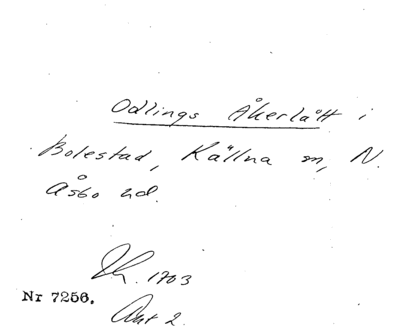 Odlings Åkerlått i
Bolestad, Källna sn, N.
Åsbo hd.
1703
Nr 7256.
Akt 2